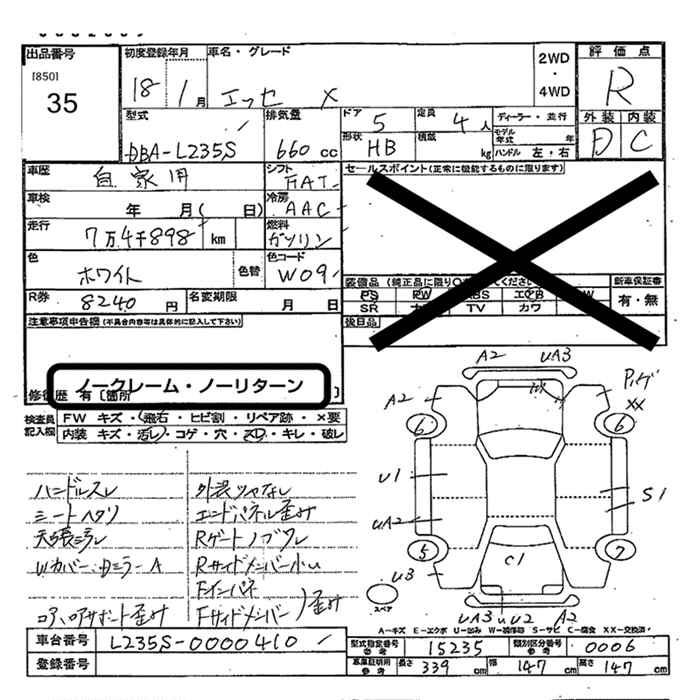 出品番号
[850]
35
初度登録年月
18 1月
車名・グレード
エッセ X
2WD
・
4WD
評価点
R
外装 内装
D C
型式
DBA-L235S
排気量
660 cc
ドア
5
定員
4人
ディーラー・並行
形状
HB
積載
kg
モデル年式 年
ハンドル 左・右
車歴
自家用
シフト
FAT
セールスポイント(正常に機能するものに限ります)
車検
年 月( 日)
冷房
AAC
走行
7万4千898 km
燃料
ガソリン
色
ホワイト
色替
色コード
W09
装備品(純正品に限り
ください)
新車保証書
有・無
PS PW ABS
SR TV カワ
後日品
R券
8240円
名変期限
月 日
注意事項申告欄(不具合内容等は具体的に記入して下さい)
ノークレーム・ノーリターン
修復歴 有〔箇所 〕
検査員記入欄
FW キズ・飛石・ヒビ割・リペア跡・×要
内装 キズ・汚レ・コゲ・穴・スレ・キレ・破レ
ハンドルスレ
シートヘタリ
外装ツヤなし
エンドパネル歪み
Rサイドメンバー小U
Fインパネ
Fサイドメンバー 歪み
A2 UA3
A2
6 6
XX
U1
UA2
S1
5 7
U3
C1
UA3 U U2 A2
スペア
A－キズ E－エクボ U－凹み W－補修跡 S－サビ C－腐食 XX－交換済
車台番号
L235S-0000410
登録番号
型式指定番号
参考
15235
類別区分番号
参考
0006
車庫証明用
参考
長さ 339 cm
幅 147 cm
高さ 147 cm